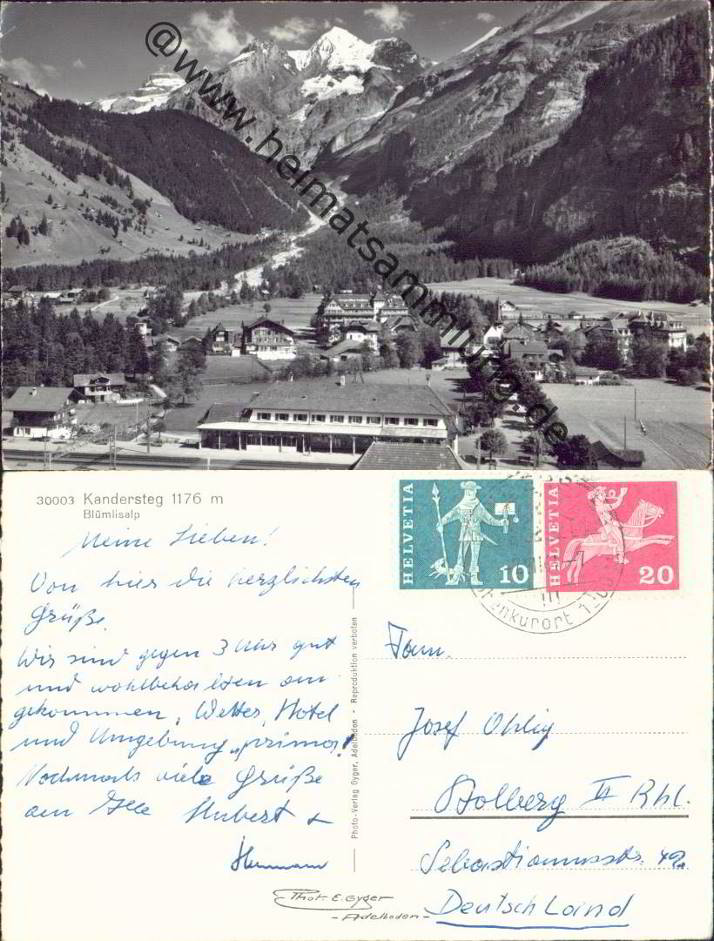 @www.heimatsammlung.de
30003 Kandersteg 1176 m
Blümlisalp
Meine Lieben!
Von hier die herzlichsten
Grüße.
Wir sind gegen 3 Uhr gut
und wohlbehalten an
gekommen, Wetter, Hotel
und Umgebung „prima!“
Nochmals viele Grüße
an Alle Hubert +
Hermann
Phot. E. Gyger
- Adelboden -
Photo-Verlag Gyger, Adelboden - Reproduktion verboten
HELVETIA
10
HELVETIA
20
enkurort
Fam.
Josef Ohlig
Stolberg II Rhl.
Sebastianusstr. 49a
Deutschland